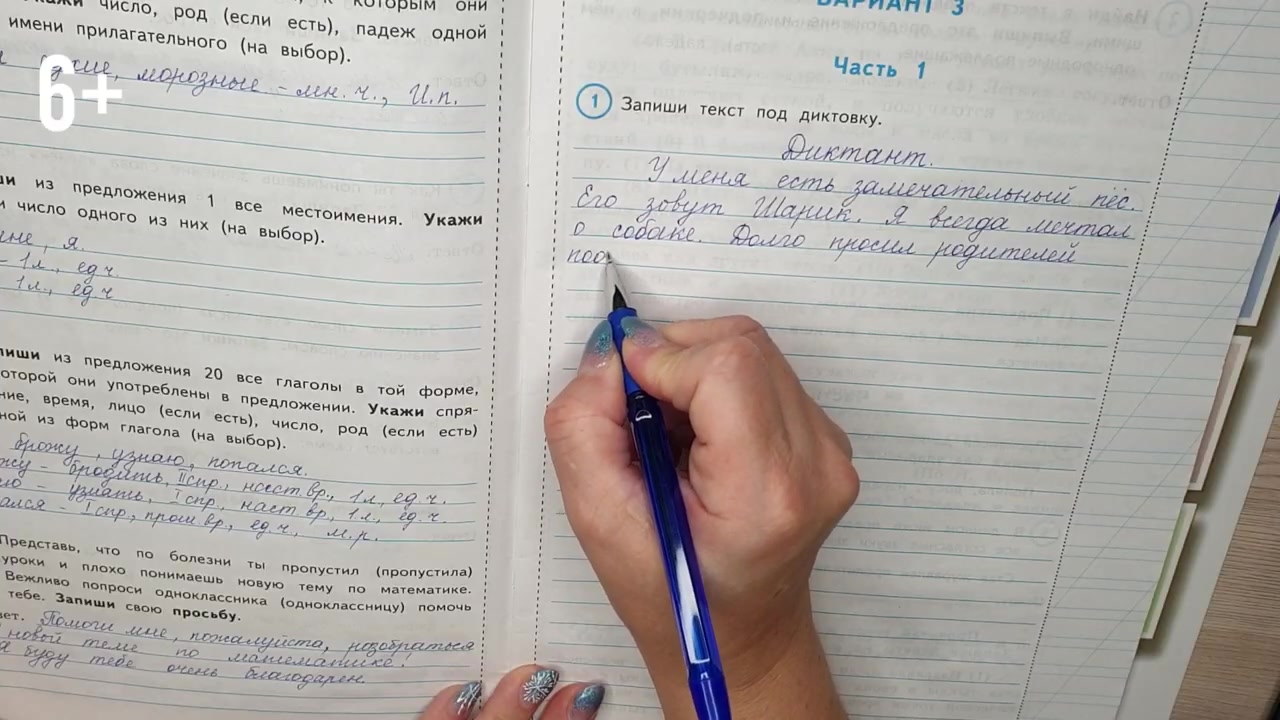 6+
кажи число, род (если есть), падеж одной
имени прилагательного (на выбор).
морозные - мн. ч., И.п.
ши из предложения 1 все местоимения. Укажи
и число одного из них (на выбор).
мне, я.
- 1 л., ед.ч.
1 л., ед.ч
пиши из предложения 20 все глаголы в той форме,
которой они употреблены в предложении. Укажи спря-
ние, время, лицо (если есть), число, род (если есть)
ной из форм глагола (на выбор).
брожу, узнаю, попался.
жу - бродить, II спр., наст. вр., 1 л., ед. ч.
ю - узнать, I спр., наст. вр., 1 л., ед. ч.
ался - I спр., прош. вр., ед.ч., м.р.
Представь, что по болезни ты пропустил (пропустила)
уроки и плохо понимаешь новую тему по математике.
Вежливо попроси одноклассника (одноклассницу) помочь
тебе. Запиши свою просьбу.
вет. Помоги мне, пожалуйста, разобраться
новой теме по математике.
Я буду тебе очень благодарен.
ВАРИАНТ 3
Часть 1
1 Запиши текст под диктовку.
Диктант.
У меня есть замечательный пёс.
Его зовут Шарик. Я всегда мечтал
о собаке. Долго просил родителей